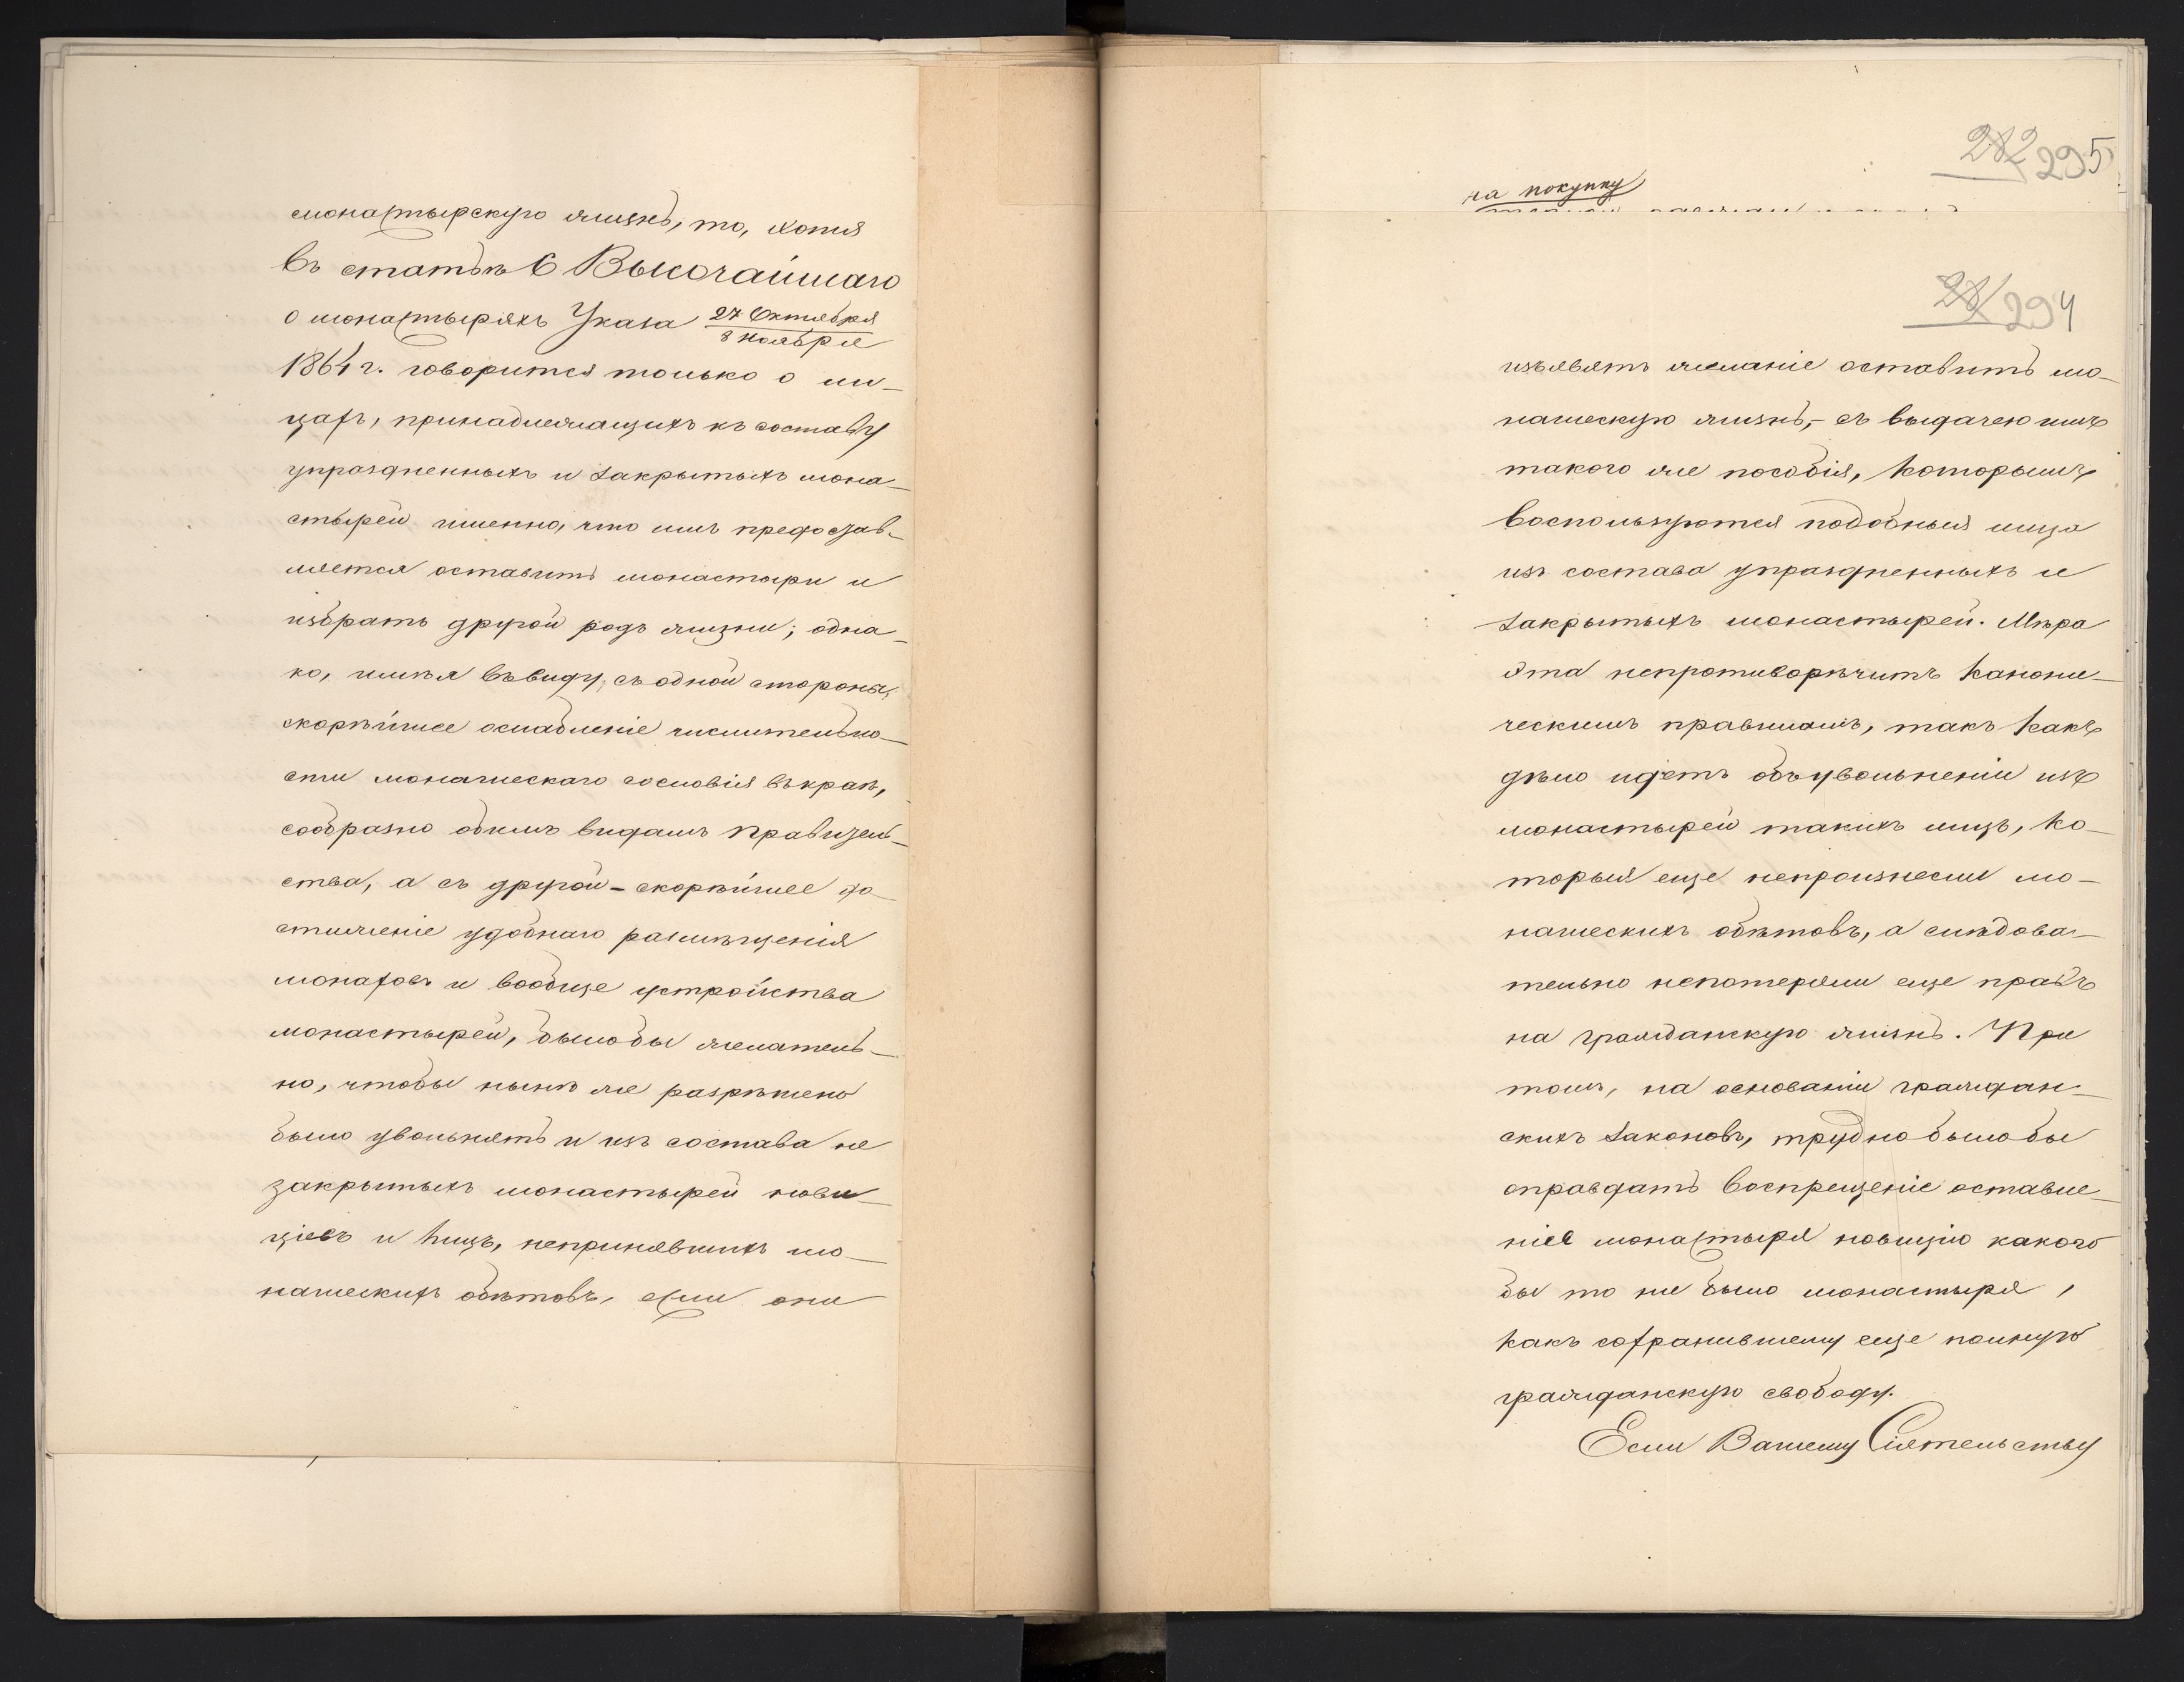 монастырскую жизнь, то, хотя
въ статьѣ 6 Высочайшаго
о монастыряхъ Указа 27 Октября
8 Ноября
1864 г. говорится только о ли-
цахъ, принадлежащихъ къ составу
упраздненныхъ и закрытыхъ мона-
стырей именно, что имъ предостав-
ляется оставить монастыри и
избрать другой родъ жизни; одна-
ко, имѣя въ виду, съ одной стороны,
скорѣйшее ослабленіе числительно-
сти монашескаго сословія въ краѣ,
сообразно обшимъ видамъ Правитель-
ства, а съ другой - скорѣйшее до-
стиженіе удобнаго размѣщенія
монаховъ и вообще устройства
монастырей, было бы желатель-
но, чтобы нынѣ же разрѣшено
было увольнять и изъ состава не
закрытыхъ монастырей нови-
ціевъ и лицъ, непринявшихъ мо-
нашескихъ обѣтовъ, если они
282 295
на покупку
281 294
изъявятъ желаніе оставить мо-
нашескую жизнь, - съ выдачею имъ
такого же пособія, которымъ
воспользуются подобныя лица
изъ состава упраздненныхъ и
закрытыхъ монастырей. Мѣра
эта непротиворѣчитъ канони-
ческимъ правиламъ, такъ какъ
дѣло идетъ объ увольненіи изъ
монастырей такихъ лицъ, ко-
торыя еще непроизнесли мо-
нашескихъ обѣтовъ, а слѣдова-
тельно непотеряли еще правъ
на гражданскую жизнь. При
томъ, на основаніи граждан-
скихъ законовъ, трудно было бы
оправдать воспрещеніе оставле-
нія монастыря новицію какого
бы то ни было монастыря,
какъ сохранившему еще полную
гражданскую свободу.
Если Вашему Сіятельству